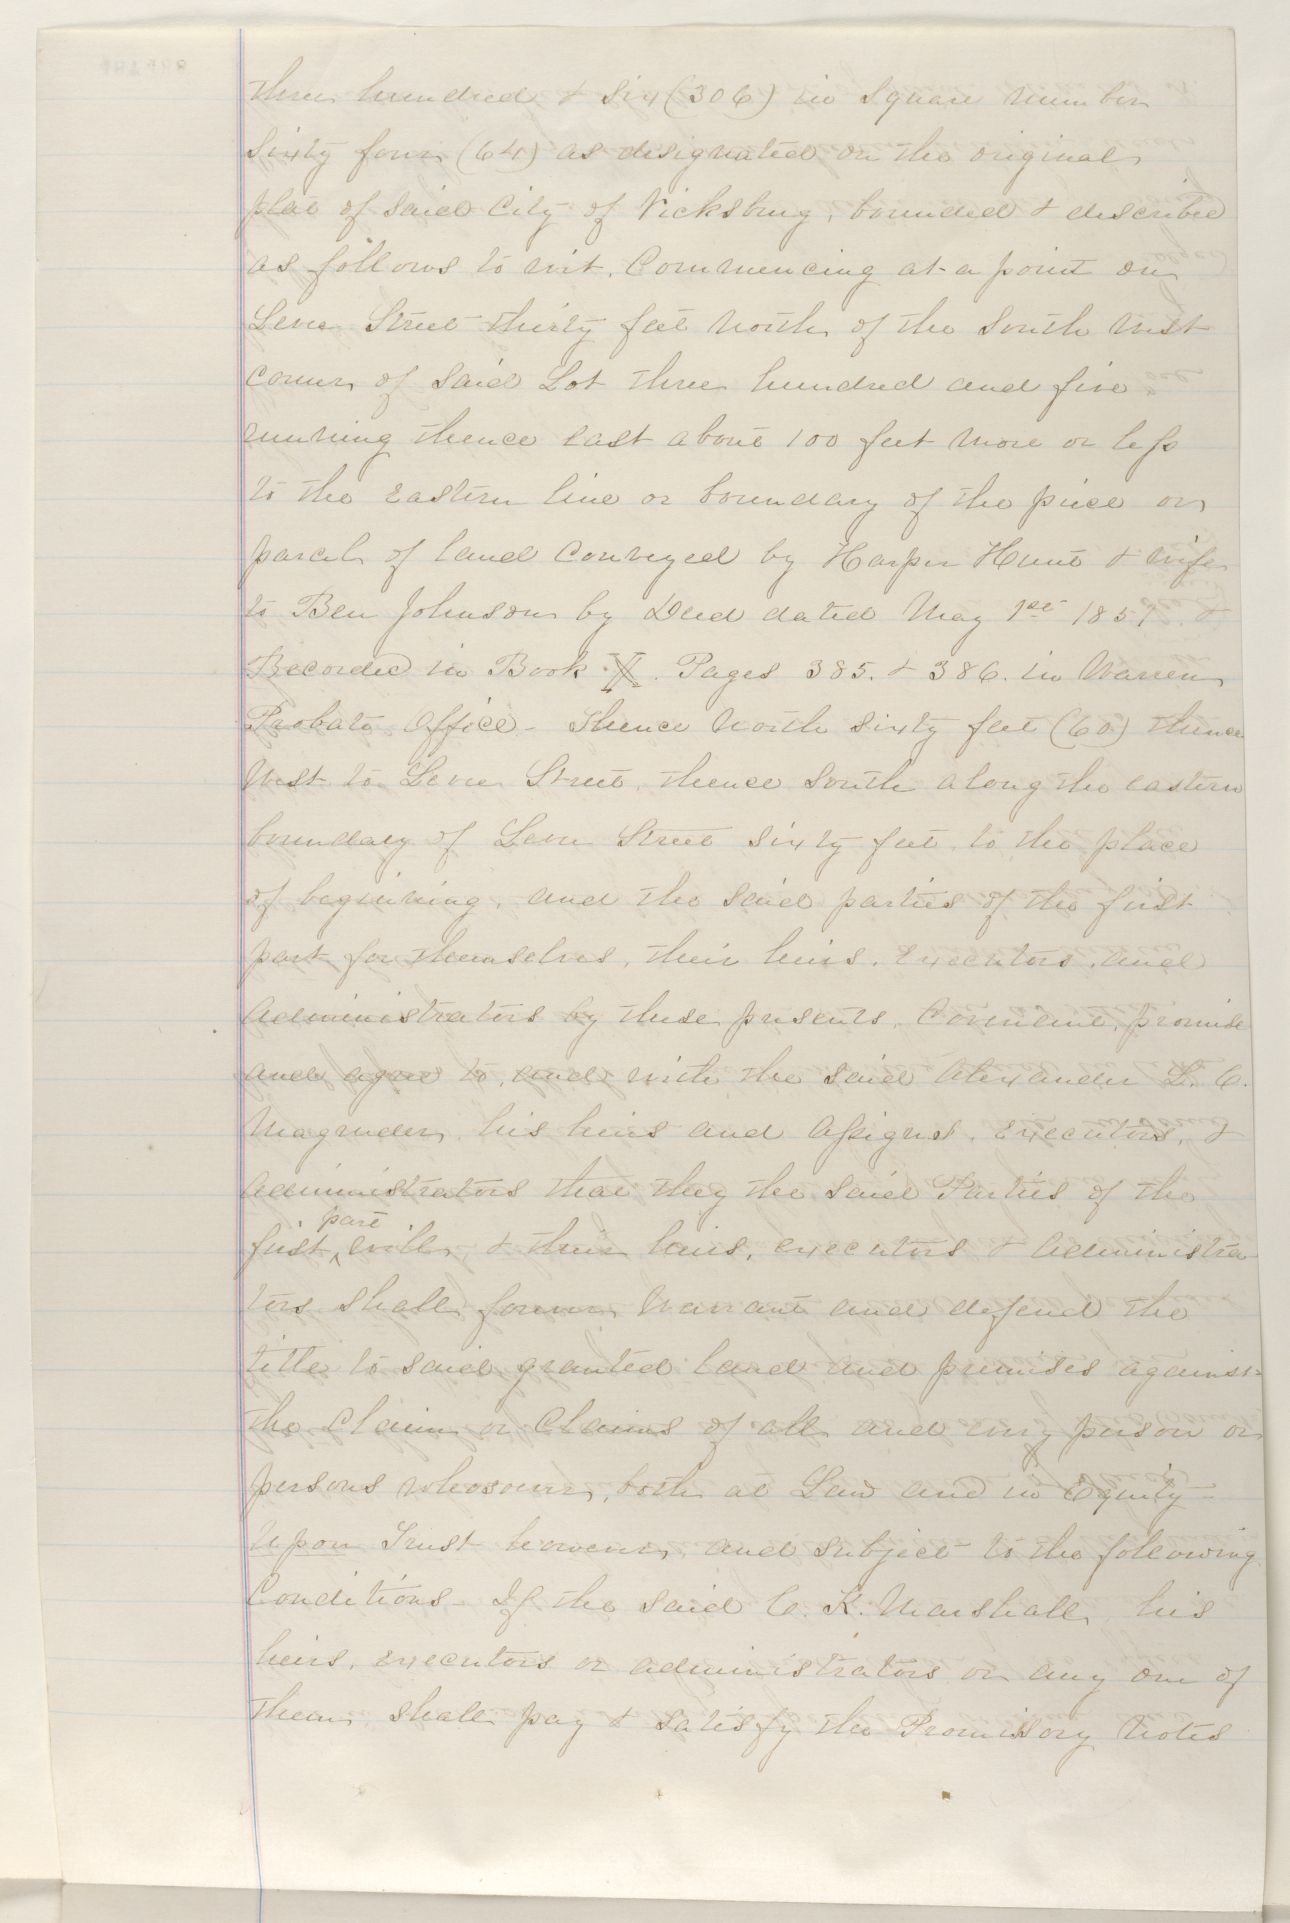 three hundred & six (306) in Square number
Sixty four (64) as designated on the original
plat of said City of Vicksburg, bounded & described
as follows to wit. Commencing at a point on
Levee Street thirty feet North of the South West
corner of said Lot three hundred and five
running thence east about 100 feet more or less
to the Eastern line or boundary of the piece or
parcel of land Conveyed by Harper Hunt & wife
to Ben Johnson by Deed dated May 1st 1851 &
Recorded in Book Pages 385. & 386. in Warren
Probate Office - Thence North sixty feet (60) thence
West to Levee Street, thence South along the eastern
boundary of Levee Street sixty feet, to the place
of beginning, and the said parties of the first
part for themselves, their heirs, Executors, and
Administrators by these presents, Covenant, promise
and agree to, and with the said Alexander L. C.
Magruder, his heirs and Assigns, Executors, &
Administrators that they the said Parties of the
first part will, & their heirs, executors & Administra
tors shall forever Warrant and defend the
title to said granted land and premises against
the Claim or Claims of all and every person or
persons whosoever, both at Law and in Equity -
Upon Trust however, and subject to the following
Conditions - If the said C. K. Marshall, his
heirs, executors or administrators or any one of
them shall pay & satisfy the Promissory Notes